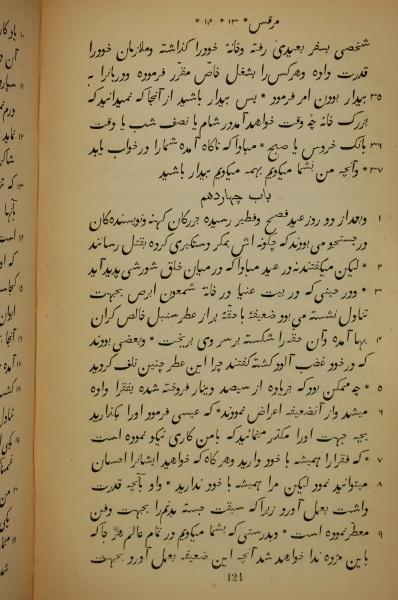 مرقس * ۱۳ * ۱۴ *
شخصی بسفر بعیدی رفته وخانهٔ خودرا گذاشته وملازمان خودرا
قدرت داده وهرکس را بشغل خاصّ مقرّر فرموده ودربانرا به
۳۵ بیدار بودن امر فرمود * پس بیدار باشید از آنجا که نمیدانید که
بزرک خانه چه وقت خواهد آمد در شام یا نصف شب یا وقت
۳۶ بانک خروس یا صبح * مبادا که ناکاه آمده شمارا در خواب یابد
۳۷ * وآنچه من بشما میکویم بهمه میکویم بیدار باشید
باب چهاردهم
۱ وبعد از دو روز عید فصح وفطیر رسیده بزرکان کهنه ونویسنده کان
در جستجو می بودند که چکونه اش بمکر دستکیری کرده بقتل رسانند
۲ * لیکن میکفتند نه در عید مبادا که در میان خلق شورشی پدید آید
۳ * ودر حینی که در بیت عنیا در خانهٔ شمعون ابرص بجهت
تناول نشسته می بود ضعیفهٔ با حقّهٔ پر از عطر سنبل خالص کران
۴ بها آمده وآن حقّه را شکسته بر سر وی بریخت * وبعضی بودند
که در خود غضب آلود کشته کفتند چرا این عطر چنین تلف کردید
۵ * چه ممکن بود که بزیاده از سیصد دینار فروخته شده بفقرا داده
۶ میشد واز آنضعیفه اعراض نمودند * که عیسی فرمود اورا بکذارید
بچه جهت اورا مکدّر مینمائید که بامن کاری نیکو نموده است
۷ * که فقرارا همیشه با خود دارید وهر کاه که خواهید ایشانرا احسان
۸ میتوانید نمود لیکن مرا همیشه با خود ندارید * واو بآنچه قدرت
داشت بعمل آورد زیرا که سبقت جسته بدنمرا بجهت دفن
۹ معطّر نموده است * وبدرستی که بشما میکویم در تمام عالم هر جا که
باین مژده ندا خواهد شد آنچه این ضعیفه بعمل آورد بجهت
121